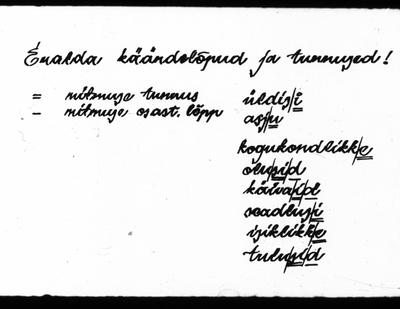 Eralda käändelõpud ja tunnused!
= mitmuse tunnus
üldis/i
– mitmuse osast. lõpp
as/u
kogukondlikk/e
olu/si/d
käiva/i/d
seadlus/i
isiklikk/e
tulu/si/d